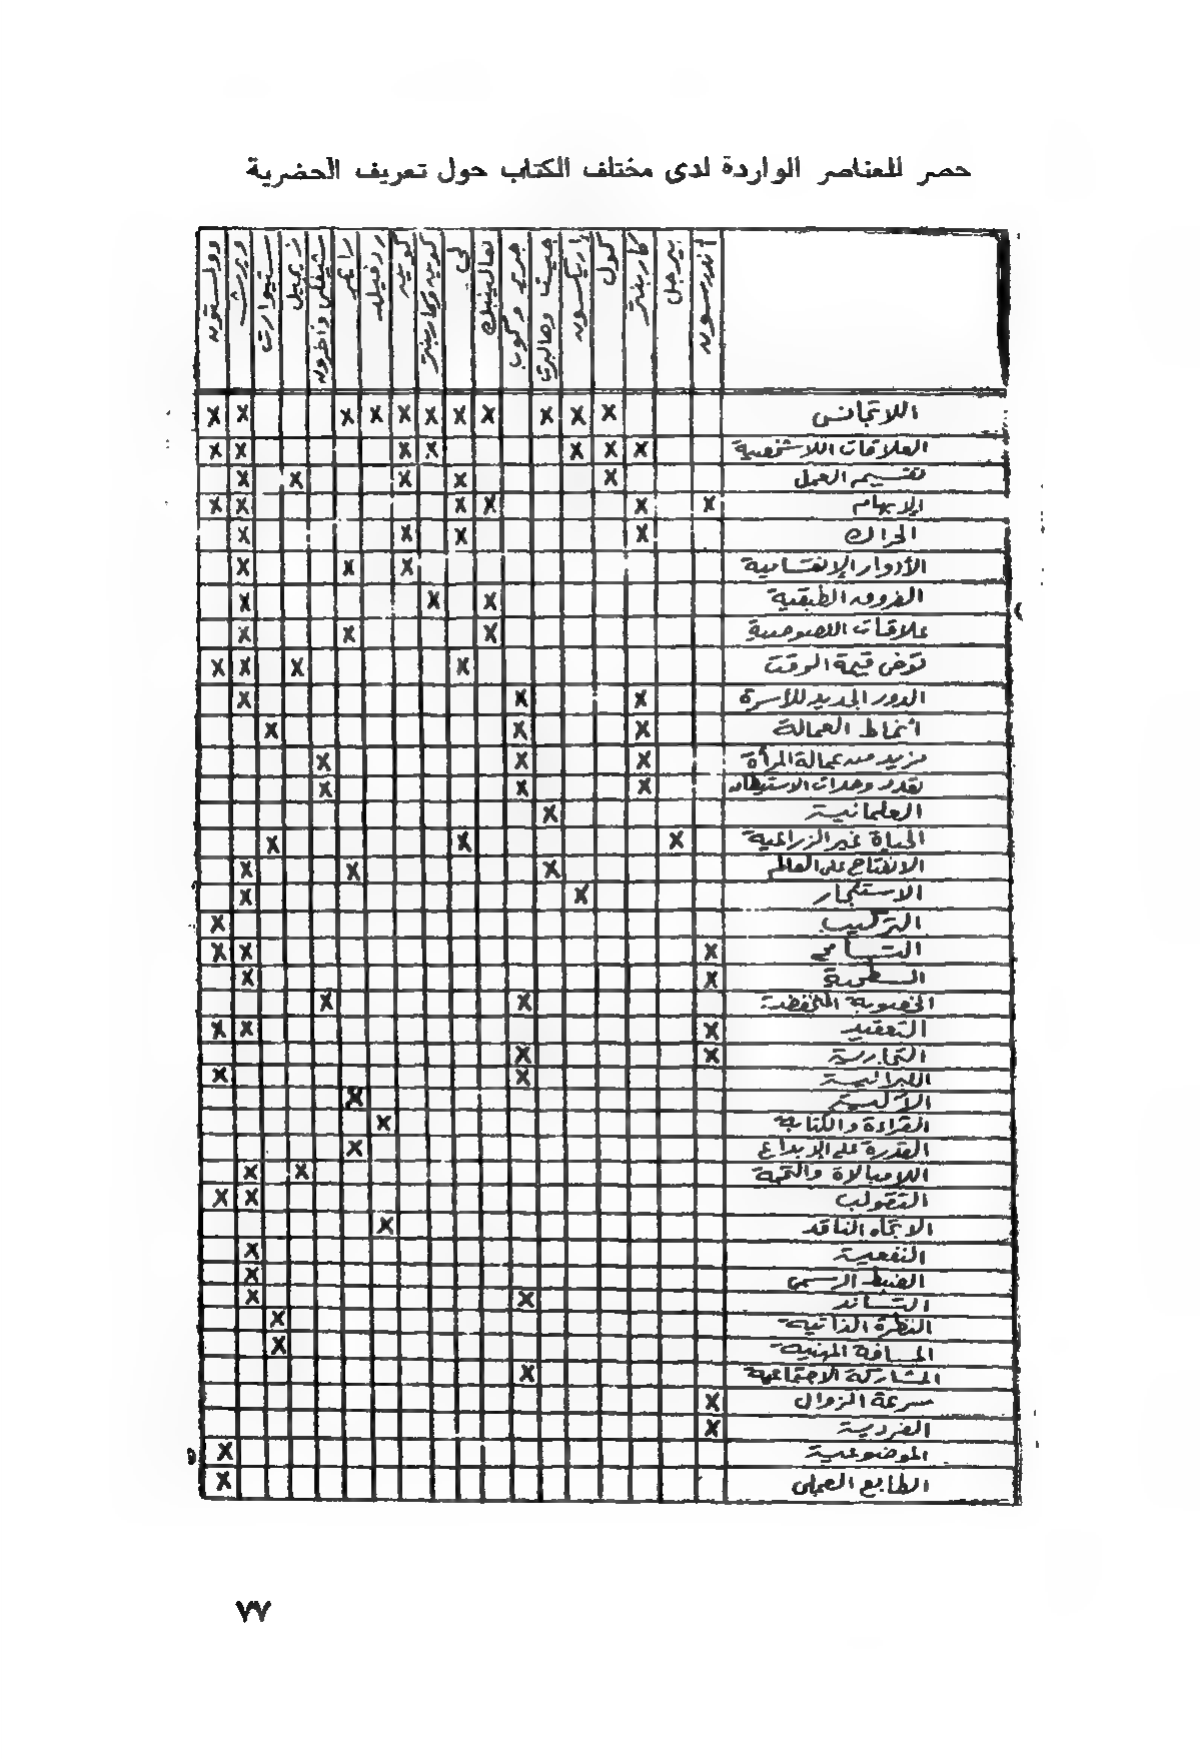 حصر للعناصر الواردة لدى مختلف الكتاب حول تعريف الحضرية
أندرسون
بيرجل
كاربنتر
كول
إريكسون
جيست وهالبرت
جري وكوب
هالينبك
لي
كوين وكاربنتر
كوين
ردفيلد
رايمر
شيفكي وآخرون
زيميل
ستيوارت
ويرث
وولستون
اللاتجانس X X X X X X X X X X X
العلاقات اللاشخصية X X X X X X X
تقسيم العمل X X X X X
الإبهام X X X X X X
الحراك X X X X
الأدوار الإنقسامية X X X
الفروق الطبقية X X X
علاقات اللصوصية X X X
توخى قيمة الوقت X X X X
الدور الجديد للأسرة X X X
أنماط العمالة X X X
مزيد من عمالة المرأة X X X
تعدد وحدات الاستيطان X X X
العلمانية X
الحياة غير الزراعية X X X
الانفتاح على العالم X X X
الاستئجار X X
التركيب X
التسامح X X X
السطحية X X
الخصوبة المنخفضة X X
التعقيد X X X
التجارية X X
اللبرالية X X
الآلية X
القراءة والكتابة X
القدرة على الإبداع X
اللامبالاة والتخمة X X
التقولب X X
الاتجاه الناقد X
النفعية X
الضبط الرسمى X
التساند X X
النظرة الذاتية X
المسافة المهنية X
المشاركة الاجتماعية X
سرعة الزوال X
الفردية X
الموضوعية X
الطابع العملى X
٧٧